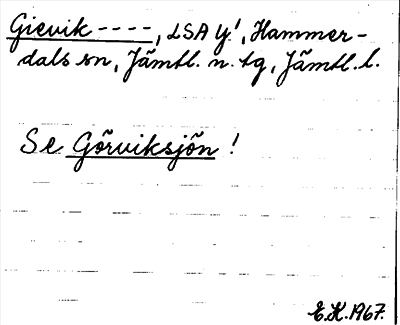 Gievik ----, LSA Y!, Hammer-
dals sn, Jämtl. n. tg, Jämtl. l.
Se Görviksjön !
E.K. 1967.